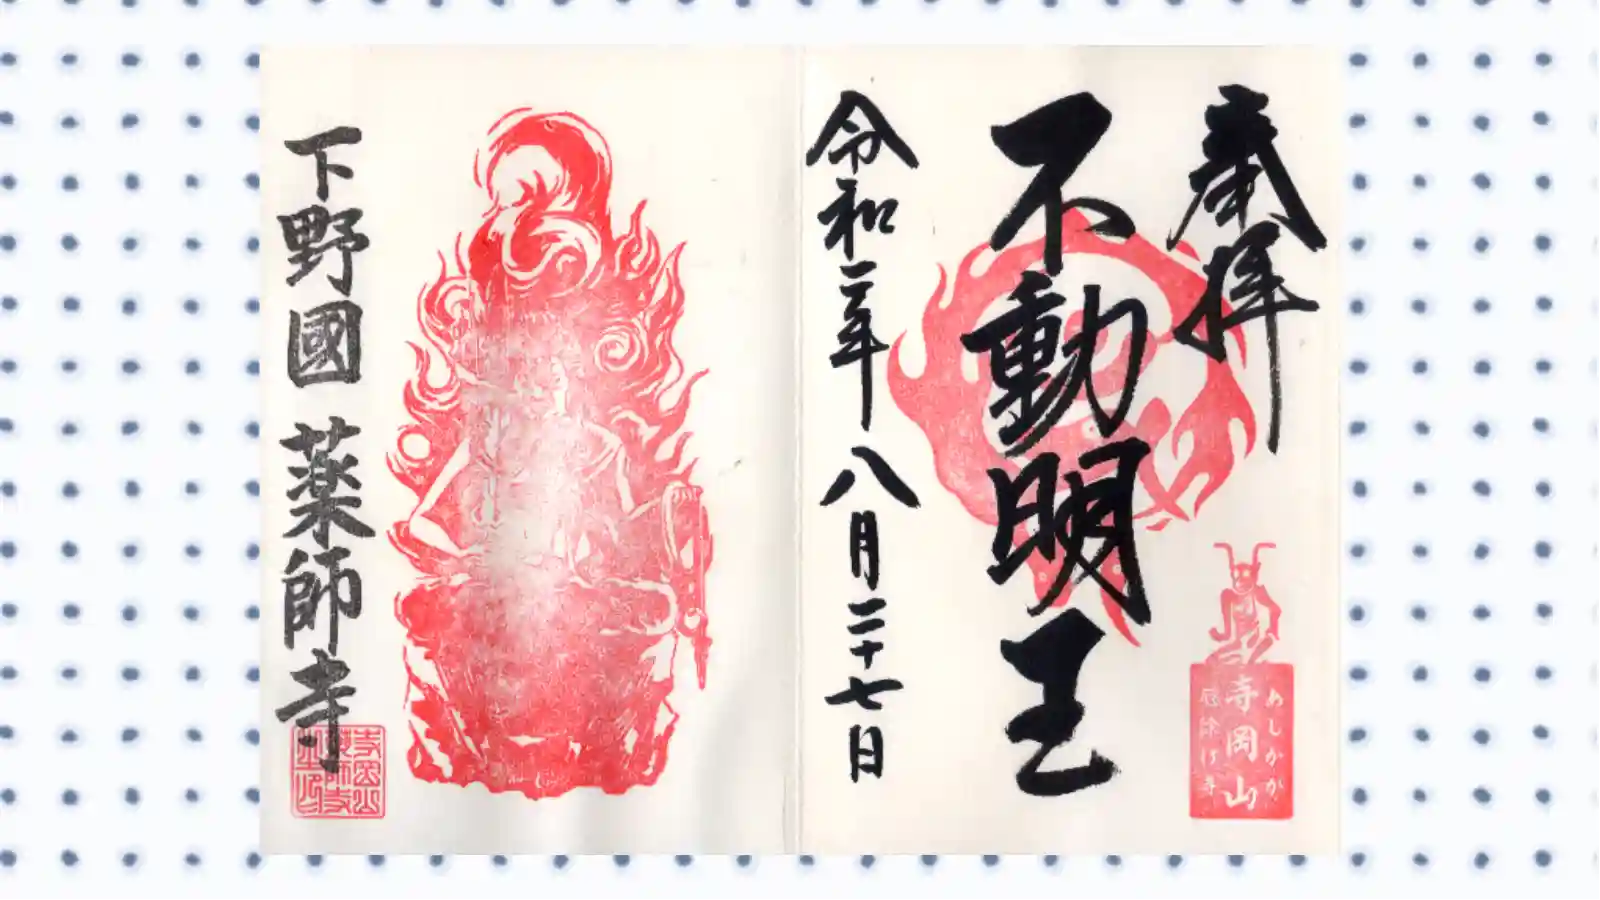 奉拝
不動明王
令和二年八月二十七日
あしかが
寺岡山
厄除け寺
下野國 薬師寺